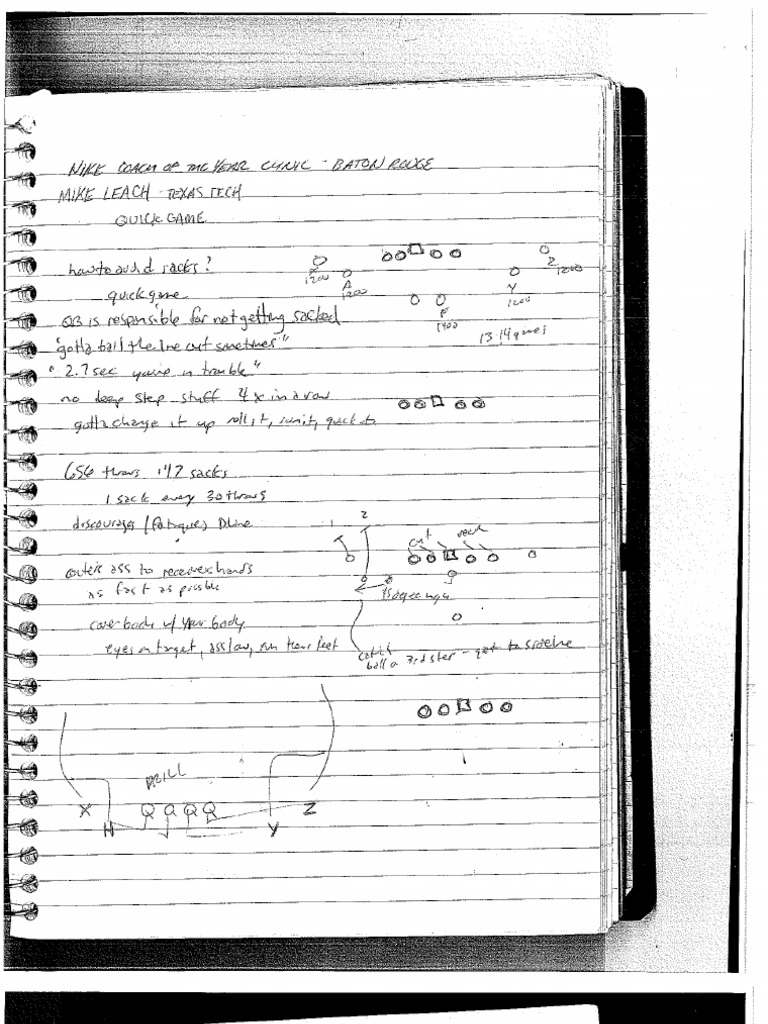 NIKE COACH OF THE YEAR CLINIC - BATON ROUGE
MIKE LEACH - TEXAS TECH
QUICK GAME
how to avoid sacks?
quick game
QB is responsible for not getting sacked
"gotta bail the line out sometimes"
"2.7 sec you're in trouble"
no deep step stuff 4x in a row
gotta change it up roll it, run it, quick it
X
1200
A
1200
Y
1200
Z
1200
F
1400
13-14 games
656 throws 17 sacks
1 sack every 30 throws
discourages (fatigues) D line
outside ass to receivers hands
as fast as possible
cover body w/ your body
eyes on target, ass low, run your feet
1
2
cut
catch
ball on 3rd step - get to sideline
DRILL
X
H
Q Q Q Q
Y
Z